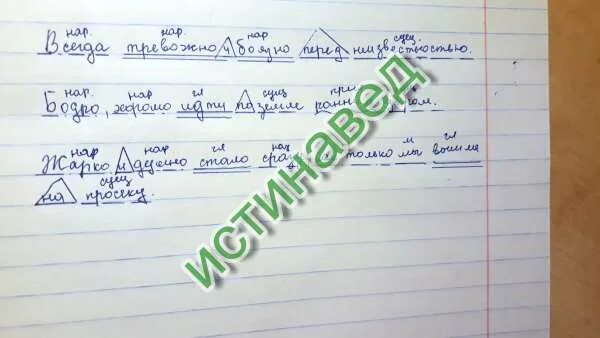 нар. нар. нар сущ.
Всегда тревожно и боязно перед неизвестностью.
нар. нар гл сущ при
Бодро, хорошо идти по земле ранн
нар нар гл нар м гл
Жарко и душно стало только мы вышли
сущ
на просеку.
ИСТИНАВЕД